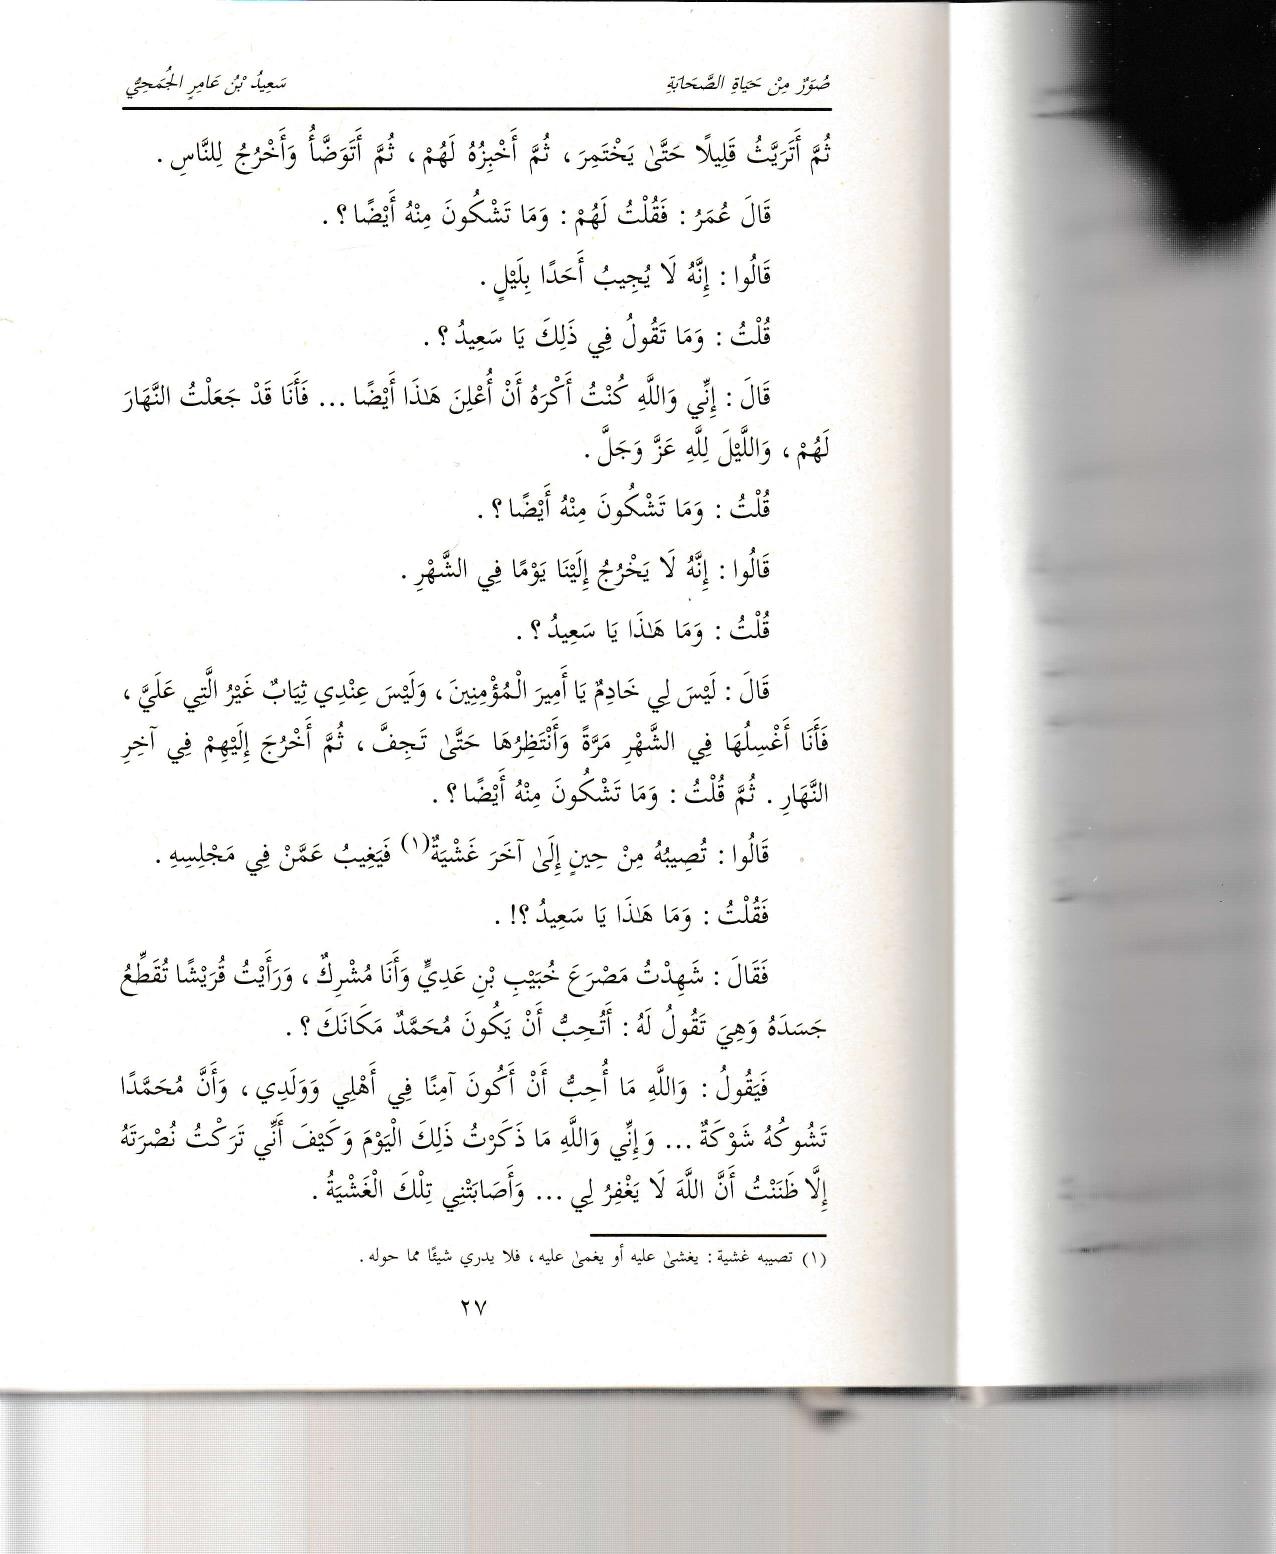 صُوَرٌ مِنْ حَيَاةِ الصَّحَابَةِ
سَعِيدُ بْنُ عَامِرٍ الجُمَحِيُّ
ثُمَّ أَتَرَيَّثُ قَلِيلًا حَتَّىٰ يَخْتَمِرَ ، ثُمَّ أَخْبِزُهُ لَهُمْ ، ثُمَّ أَتَوَضَّأُ وَأَخْرُجُ لِلنَّاسِ .
قَالَ عُمَرُ : فَقُلْتُ لَهُمْ : وَمَا تَشْكُونَ مِنْهُ أَيْضًا ؟ .
قَالُوا : إِنَّهُ لَا يُجِيبُ أَحَدًا بِلَيْلٍ .
قُلْتُ : وَمَا تَقُولُ فِي ذَلِكَ يَا سَعِيدُ ؟ .
قَالَ : إِنِّي وَاللَّهِ كُنْتُ أَكْرَهُ أَنْ أُعْلِنَ هَٰذَا أَيْضًا ... فَأَنَا قَدْ جَعَلْتُ النَّهَارَ
لَهُمْ ، وَاللَّيْلَ لِلَّهِ عَزَّ وَجَلَّ .
قُلْتُ : وَمَا تَشْكُونَ مِنْهُ أَيْضًا ؟ .
قَالُوا : إِنَّهُ لَا يَخْرُجُ إِلَيْنَا يَوْمًا فِي الشَّهْرِ .
قُلْتُ : وَمَا هَٰذَا يَا سَعِيدُ ؟ .
قَالَ : لَيْسَ لِي خَادِمٌ يَا أَمِيرَ الْمُؤْمِنِينَ ، وَلَيْسَ عِنْدِي ثِيَابٌ غَيْرُ الَّتِي عَلَيَّ ،
فَأَنَا أَغْسِلُهَا فِي الشَّهْرِ مَرَّةً وَأَنْتَظِرُهَا حَتَّىٰ تَجِفَّ ، ثُمَّ أَخْرُجَ إِلَيْهِمْ فِي آخِرِ
النَّهَارِ . ثُمَّ قُلْتُ : وَمَا تَشْكُونَ مِنْهُ أَيْضًا ؟ .
قَالُوا : تُصِيبُهُ مِنْ حِينٍ إِلَىٰ آخَرَ غَشْيَةٌ(١) فَيَغِيبُ عَمَّنْ فِي مَجْلِسِهِ .
فَقُلْتُ : وَمَا هَٰذَا يَا سَعِيدُ ؟! .
فَقَالَ : شَهِدْتُ مَصْرَعَ خُبَيْبِ بْنِ عَدِيٍّ وَأَنَا مُشْرِكٌ ، وَرَأَيْتُ قُرَيْشًا تُقَطِّعُ
جَسَدَهُ وَهِيَ تَقُولُ لَهُ : أَتُحِبُّ أَنْ يَكُونَ مُحَمَّدٌ مَكَانَكَ ؟ .
فَيَقُولُ : وَاللَّهِ مَا أُحِبُّ أَنْ أَكُونَ آمِنًا فِي أَهْلِي وَوَلَدِي ، وَأَنَّ مُحَمَّدًا
تَشُوكُهُ شَوْكَةٌ ... وَإِنِّي وَاللَّهِ مَا ذَكَرْتُ ذَلِكَ الْيَوْمَ وَكَيْفَ أَنِّي تَرَكْتُ نُصْرَتَهُ
إِلَّا ظَنَنْتُ أَنَّ اللَّهَ لَا يَغْفِرُ لِي ... وَأَصَابَتْنِي تِلْكَ الْغَشْيَةُ .
(١) تصيبه غشية : يغشىٰ عليه أو يغمىٰ عليه ، فلا يدري شيئًا مما حوله .
٢٧